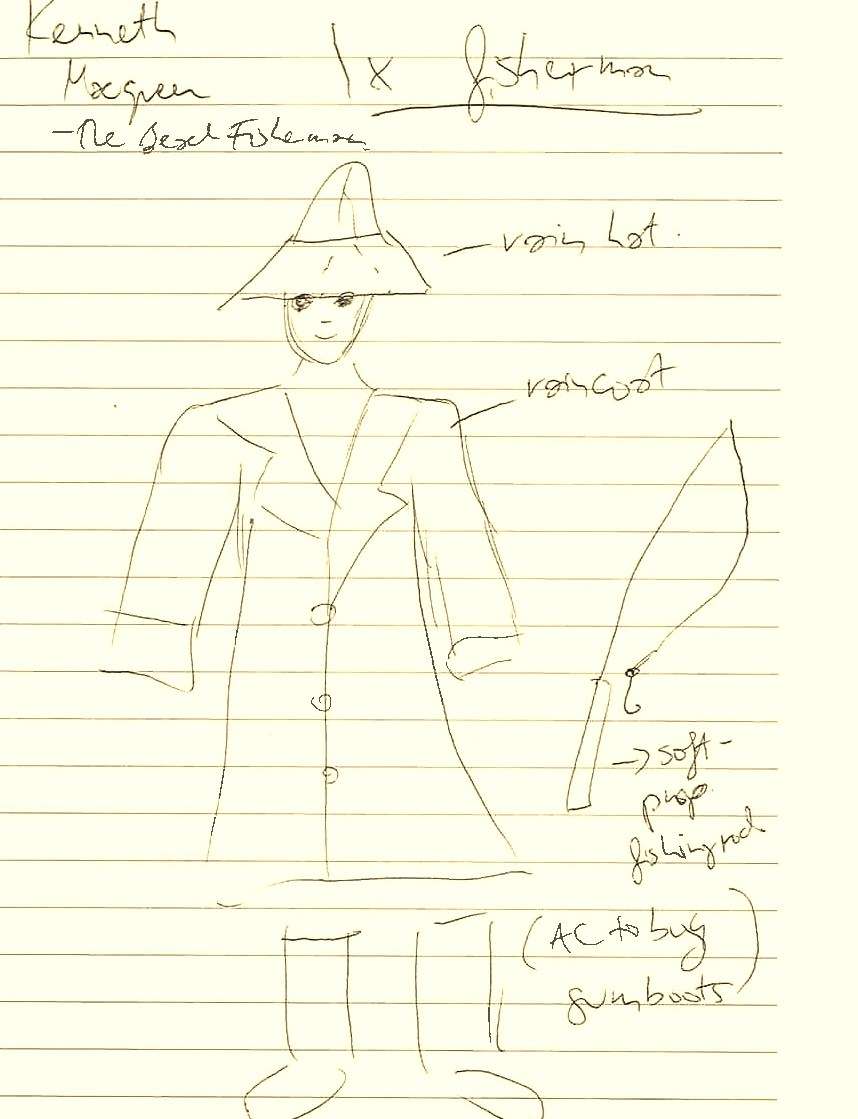 Kenneth
Macqueen
- The Beach Fisherman
1 x fisherman
rain hat.
raincoat
→ soft-
prop
fishing rod
(AC to buy
gumboots)